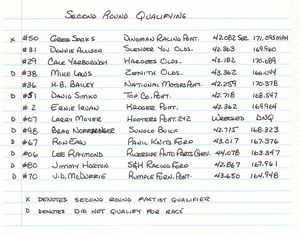 SECOND ROUND QUALIFYING
X #50 GREG SACKS DINGMAN RACING PONT. 42.082 SEC. 171.093 MPH
#31 DONNIE ALLISON SLENDER YOU OLDS. 42.363 169.960
#29 CALE YARBOROUGH HARDEES OLDS. 42.182 170.689
D #38 MIKE LAWS ZENITH OLDS. 43.362 166.044
#36 H.B. BAILEY NATIONAL MOTORS PONT. 42.259 170.378
D #51 DAVID SIMKO TOP CO. PONT. 42.718 168.547
#2 ERNIE IRVAN KROGER PONT. 42.362 169.964
D #07 LARRY MOYER HOOTERS PONT. 2+2 WRECKED DNQ
D #98 BRAD NOFFSINGER SUNOCO BUICK 42.775 168.323
D #67 RON ESAU PANIL KNITS FORD 43.017 167.376
D #06 LEE RAYMOND RIVERSIDE AUTO PARTS CHEV. 44.078 163.347
D #80 JIMMY HORTON S&H RACING FORD 42.867 167.961
D #70 J.D. McDUFFIE RUMPLE FURN. PONT. 43.650 164.948
X DENOTES SECOND ROUND FASTEST QUALIFIER
D DENOTES DID NOT QUALIFY FOR RACE